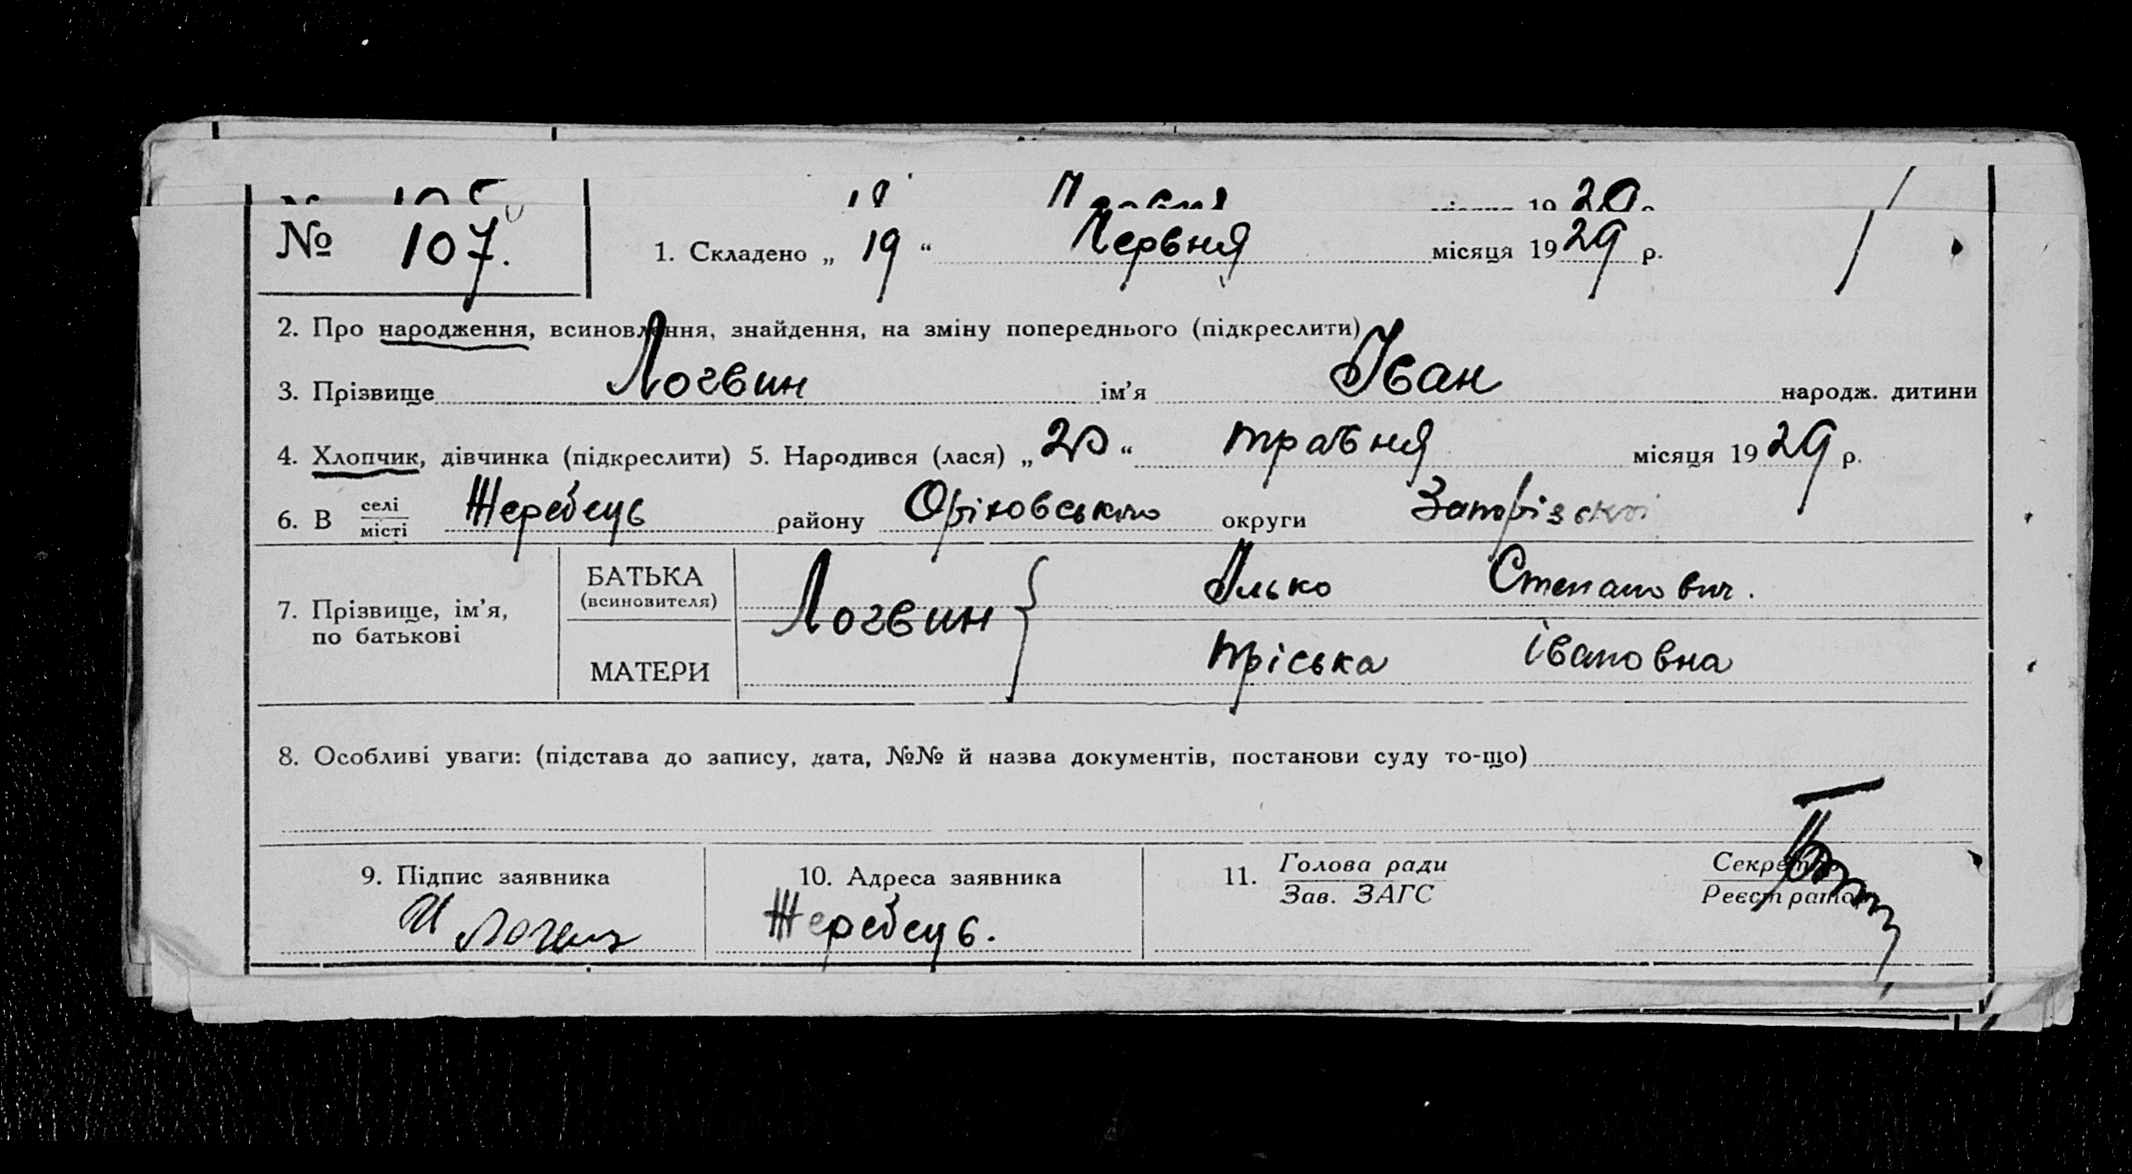 № 107.
1. Складено „ 19 “ Червня місяця 1929 р.
2. Про народження, всиновлення, знайдення, на зміну попереднього (підкреслити)
3. Прізвище Логвин ім’я Іван народж. дитини
4. Хлопчик, дівчинка (підкреслити) 5. Народився (лася) „ 20 “ травня місяця 1929 р.
6. В селі
місті Жеребець району Оріховського округи Запорізької
7. Прізвище, ім’я,
по батькові
БАТЬКА
(всиновителя)
Логвин Ілько Степанович.
МАТЕРИ Пріська Івановна
8. Особливі уваги: (підстава до запису, дата, №№ й назва документів, постанови суду то-що)
9. Підпис заявника
И Логвин
10. Адреса заявника
Жеребець.
11. Голова ради
Зав. ЗАГС
Секретар
Реєстратор